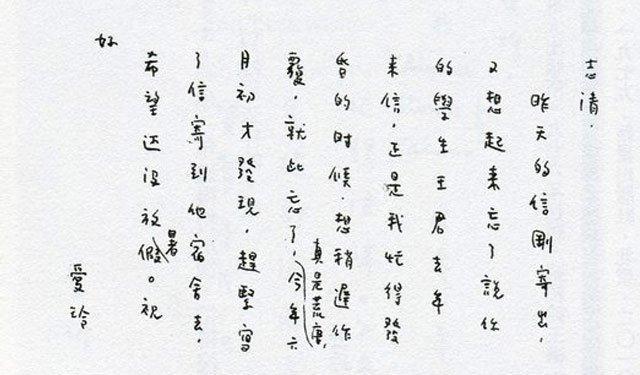 志清,
昨天的信剛寄出,
又想起来忘了說你
的學生王君去年
来信,正是我忙得發
昏的时候,想稍遲作
覆,就此忘了,真是荒唐,今年六
月初才發現,趕緊寫
了信寄到他宿舍去,
希望还没放暑假。祝
好
愛玲